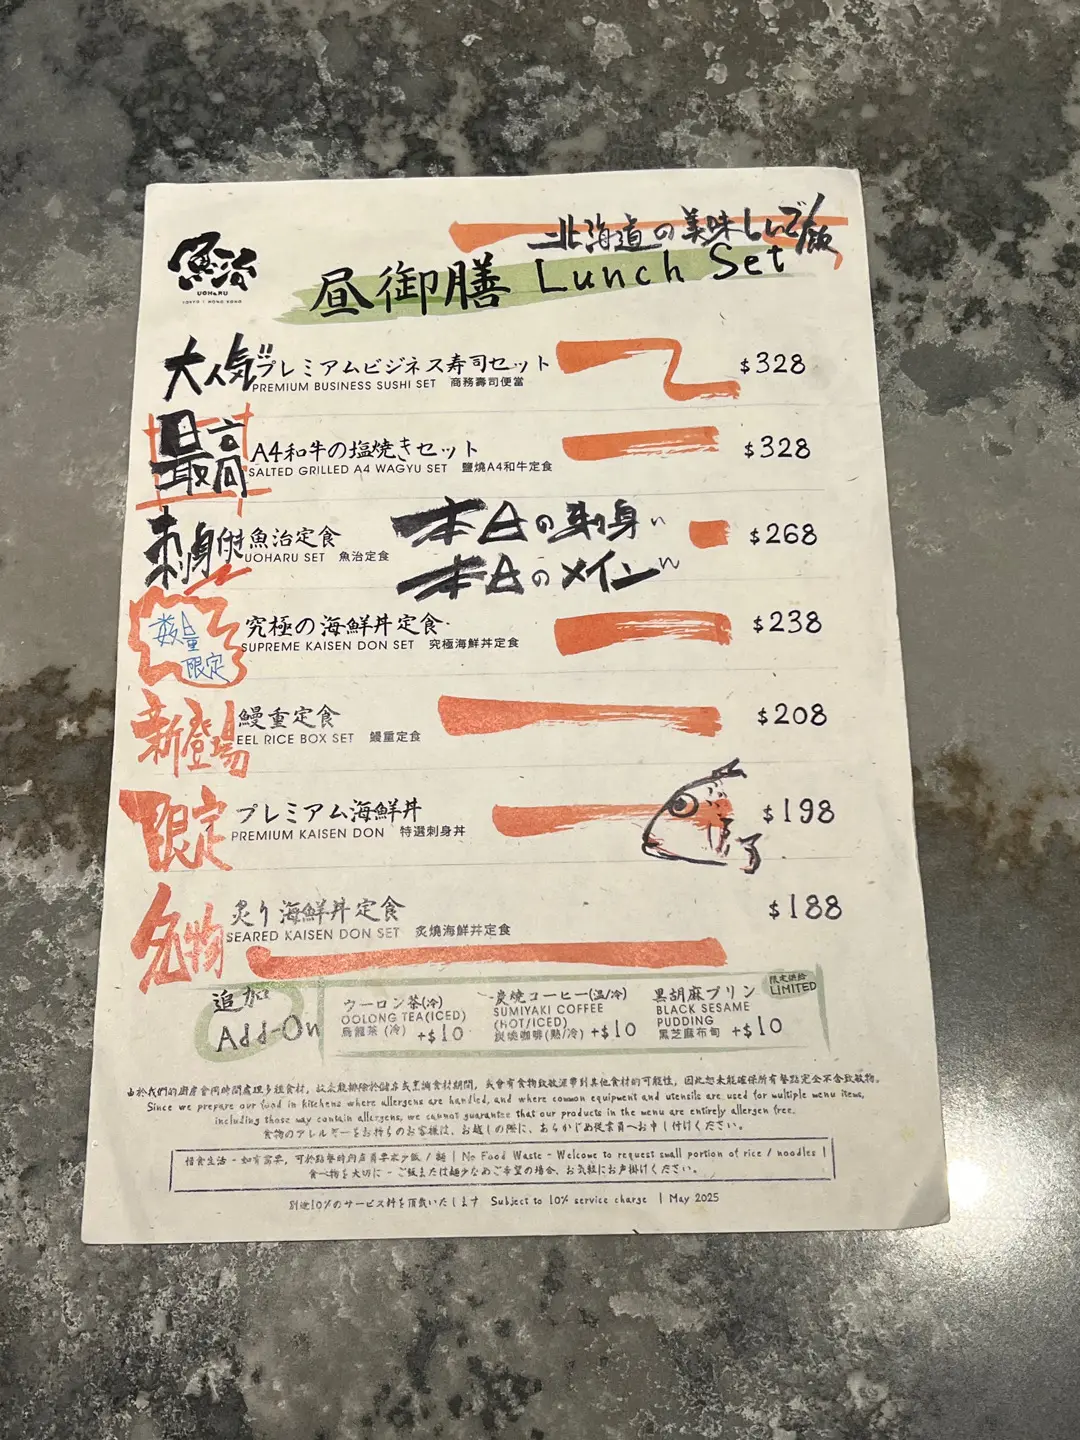 北海道の美味しいご飯
魚治
UOHARU
TOKYO | HONG KONG
昼御膳 Lunch Set
大人気!! プレミアムビジネス寿司セット $328
PREMIUM BUSINESS SUSHI SET 商務壽司便當
最高 A4和牛の塩焼きセット $328
SALTED GRILLED A4 WAGYU SET 鹽燒A4和牛定食
刺身付 魚治定食 本日の刺身 $268
UOHARU SET 魚治定食 本日のメイン
数量限定 究極の海鮮丼定食 $238
SUPREME KAISEN DON SET 究極海鮮丼定食
新登場 鰻重定食 $208
EEL RICE BOX SET 鰻重定食
限定 プレミアム海鮮丼 $198
PREMIUM KAISEN DON 特選刺身丼
名物 炙り海鮮丼定食 $188
SEARED KAISEN DON SET 炙燒海鮮丼定食
追加
Add-On
ウーロン茶(冷)
OOLONG TEA(ICED)
烏龍茶 (冷) +$10
炭焼コーヒー(温/冷)
SUMIYAKI COFFEE
(HOT/ICED)
炭燒咖啡(熱/冷) +$10
限定供給
LIMITED
黒胡麻プリン
BLACK SESAME
PUDDING
黑芝麻布甸 +$10
由於我們的廚房會同時處理多種食材，故未能排除於儲存或烹調食材期間，或會有食物致敏源帶到其他食材的可能性，因此恕未能確保所有餐點完全不含致敏物。
Since we prepare our food in kitchens where allergens are handled, and where common equipment and utensils are used for multiple menu items,
including those may contain allergens, we cannot guarantee that our products in the menu are entirely allergen free.
食物のアレルギーをお持ちのお客様は、お越しの際に、あらかじめ従業員へお申し付けください。
惜食生活 - 如有需要，可於點餐時向店員要求少飯 / 麵 | No Food Waste - Welcome to request small portion of rice / noodles |
食べ物を大切に - ご飯または麺少なめご希望の場合、お気軽にお声掛けください。
別途10%のサービス料を頂戴いたします Subject to 10% service charge | May 2025